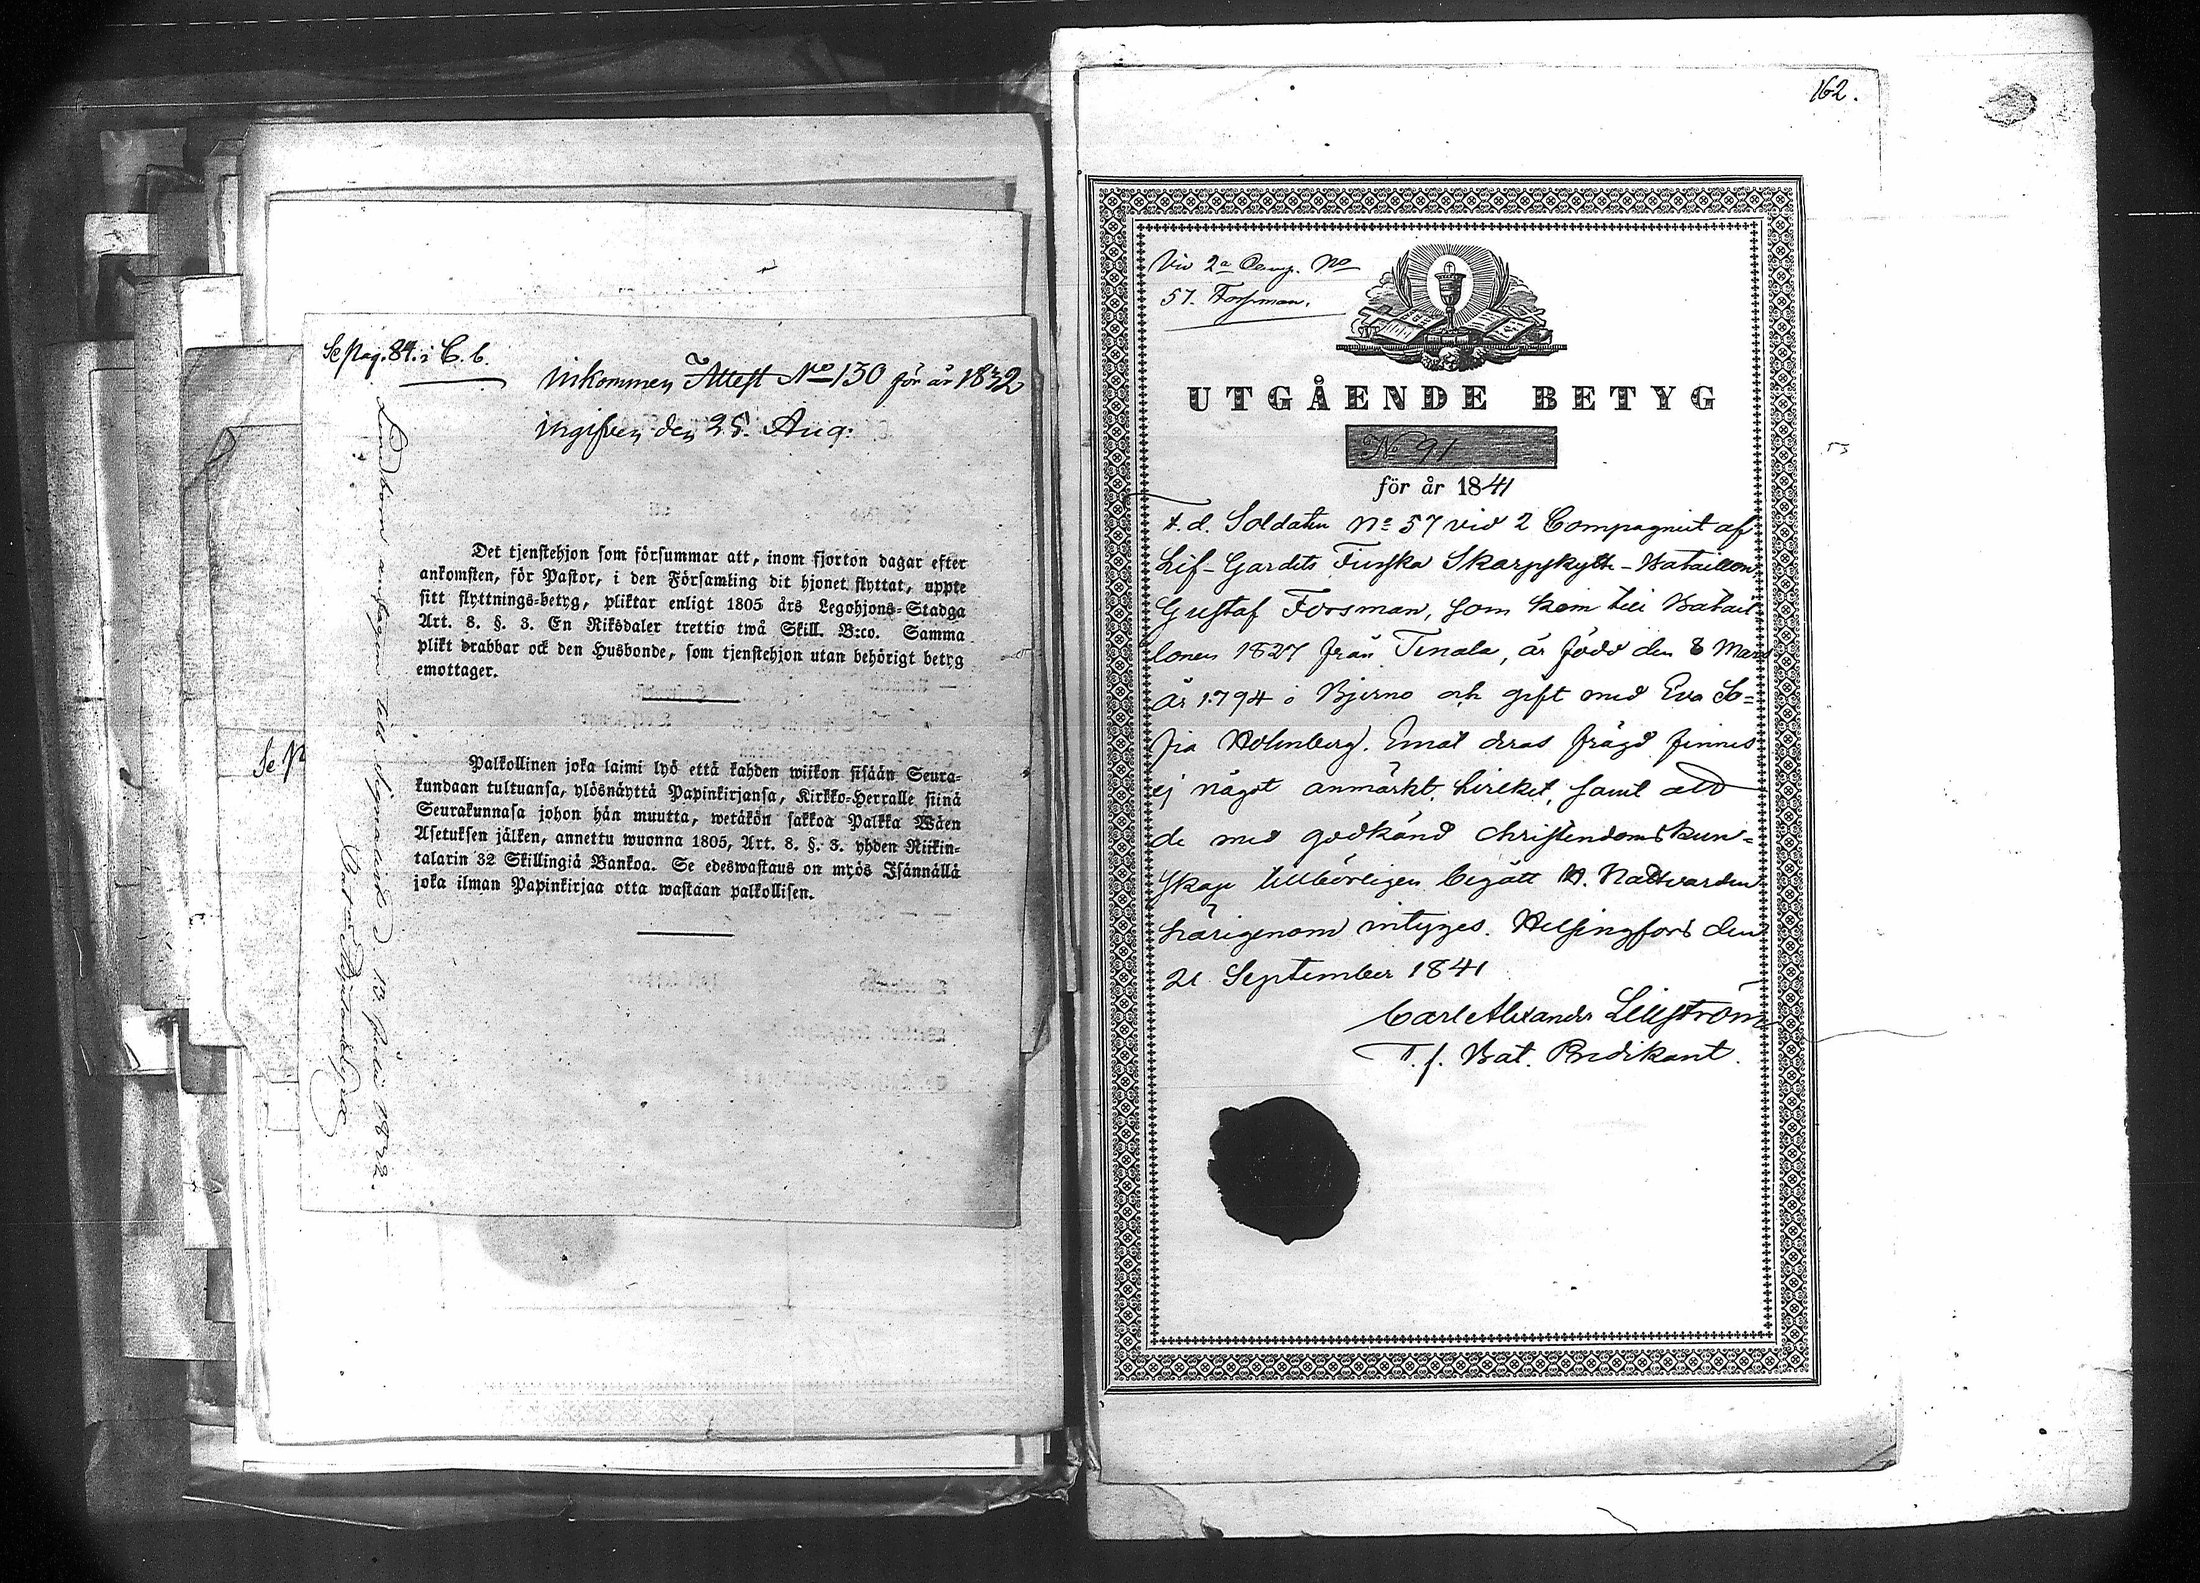 Se Pag. 84. i C. b.
Inkommen Attest No 130 för år 1832
ingifven den 25. Aug:
Det tjenstehjon som försummar att, inom fjorton dagar efter
ankomsten, för Pastor, i den Församling dit hjonet flyttat, uppte
sitt flyttnings-betyg, pliktar enligt 1805 års Legohjons-Stadga
Art. 8. §. 3. En Riksdaler trettio twå Skill. B:co. Samma
plikt drabbar ock den Husbonde, som tjenstehjon utan behörigt betyg
emottager.
Palkollinen joka laimi lyö että kahden wiikon sisään Seura-
kundaan tultuansa, ylösnäyttä Papinkirjansa, Kirkko-Herralle siinä
Seurakunnasa johon hän muutta, wetäkön sakkoa Palkka Wäen
Asetuksen jälken, annettu wuonna 1805, Art. 8. §. 3. yhden Riikin-
talarin 32 Skillingiä Bankoa. Se edeswastaus on myös Isännällä
joka ilman Papinkirjaa otta wastaan palkollisen.
till
1832.
Se P
162.
Vid 2a Comp. No
57. Forsman.
UTGÅENDE BETYG
No 91
för år 1841
F. d. Soldaten No 57 vid 2 Compagniet af
Lif-Gardets Finska Skarpskytte-Bataillon,
Gustaf Forsman, som kom till Batail
lonen 1827 från Tenala, är född den 8 Mars
år 1794 i Bjerno och gift med Eva So=
fia Holmberg. Emot deras frägd finnes
ej något anmärkt, hvilket, samt att
de med godkänd Christendomskun=
skap tillbörligen begått H. Nattvarden
härigenom intyges. Helsingfors den
21 September 1841
Carl Alexander Lillström
T. f. Bat. Predikant.